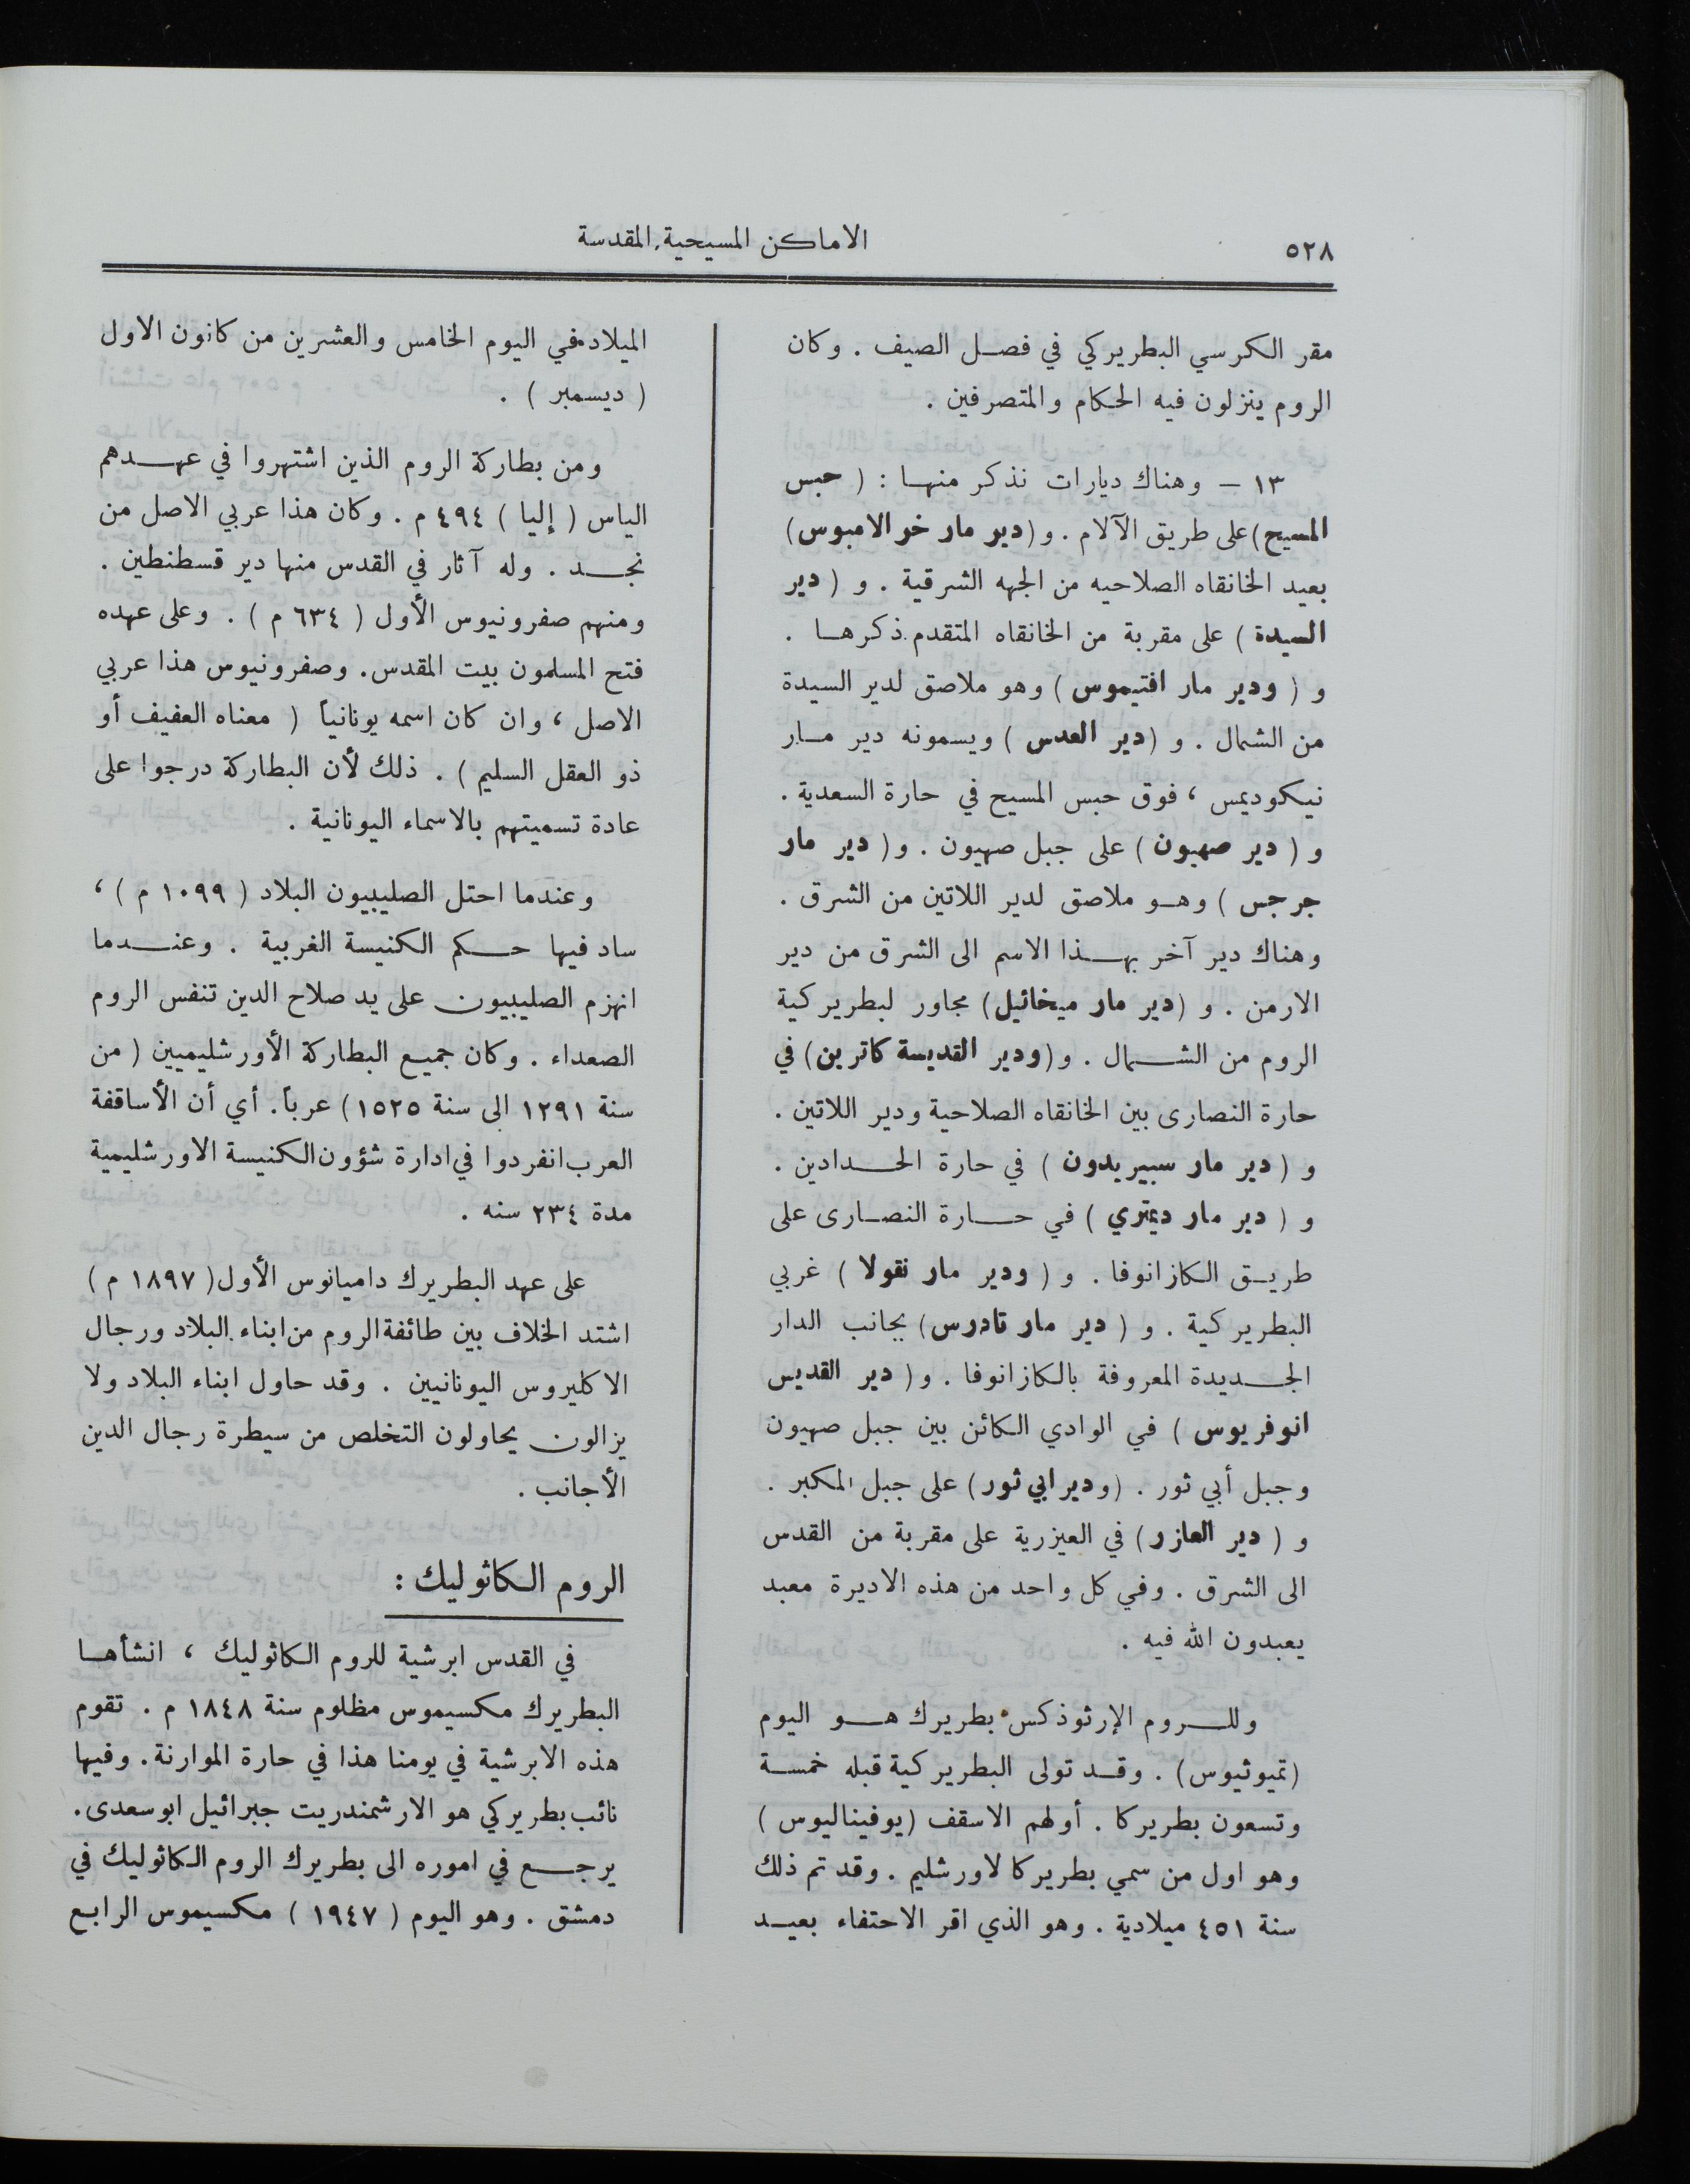 ٥٢٨
الاماكن المسيحية المقدسة
مقر الكرسي البطريركي في فصل الصيف . وكان
الروم ينزلون فيه الحكام والمتصرفين .
١٣ – وهناك ديارات نذكر منها : ( حبس
المسيح) على طريق الآلام . و (دير مار خر الامبوس)
بعيد الخانقاه الصلاحيه من الجهه الشرقية . و ( دير
السيدة ) على مقربة من الخانقاه المتقدم ذكرها .
و ( ودير مار افتيموس ) وهو ملاصق لدير السيدة
من الشمال . و (دير العدس ) ويسمونه دير مار
نيكوديمس ، فوق حبس المسيح في حارة السعدية .
و ( دير صهيون ) على جبل صهيون . و( دير مار
جرجس ) وهو ملاصق لدير اللاتين من الشرق .
وهناك دير آخر بهذا الاسم الى الشرق من دير
الارمن . و (دير مار ميخائيل) مجاور لبطريركية
الروم من الشمال . و(ودير القديسة كاترين) في
حارة النصارى بين الخانقاه الصلاحية ودير اللاتين .
و ( دير مار سبيريدون ) في حارة الحدادين .
و ( دير مار ديمتري ) في حارة النصارى على
طريق الكازانوفا . و ( ودير مار نقولا ) غربي
البطريركية . و ( دير مار تادرس) بجانب الدار
الجديدة المعروفة بالكازانوفا . و( دير القديس
انوفريوس ) في الوادي الكائن بين جبل صهيون
وجبل أبي ثور . (ودير ابي ثور) على جبل المكبر .
و ( دير العازر) في العيزرية على مقربة من القدس
الى الشرق . وفي كل واحد من هذه الاديرة معبد
يعبدون الله فيه .
وللروم الإرثوذكس بطريرك هو اليوم
(تميوثيوس) . وقد تولى البطريركية قبله خمسة
وتسعون بطريركا . أولهم الاسقف (يوفيناليوس )
وهو اول من سمي بطريركا لاورشليم . وقد تم ذلك
سنة ٤٥١ ميلادية . وهو الذي اقر الاحتفاء بعيد
الميلاد في اليوم الخامس والعشرين من كانون الاول
( ديسمبر ) .
ومن بطاركة الروم الذين اشتهروا في عهدهم
الياس ( إليا ) ٤٩٤ م . وكان هذا عربي الاصل من
نجد . وله آثار في القدس منها دير قسطنطين .
ومنهم صفرونيوس الأول ( ٦٣٤ م ) . وعلى عهده
فتح المسلمون بيت المقدس . وصفرونيوس هذا عربي
الاصل ، وان كان اسمه يونانياً ( معناه العفيف أو
ذو العقل السليم ) . ذلك لأن البطاركة درجوا على
عادة تسميتهم بالاسماء اليونانية .
وعندما احتل الصليبيون البلاد ( ١٠٩٩ م ) ،
ساد فيها حكم الكنيسة الغربية . وعندما
انهزم الصليبيون على يد صلاح الدين تنفس الروم
الصعداء . وكان جميع البطاركة الأورشليميين ( من
سنة ١٢٩١ الى سنة ١٥٢٥) عرباً . أي أن الأساقفة
العرب انفردوا في ادارة شؤون الكنيسة الاورشليمية
مدة ٢٣٤ سنه .
على عهد البطريرك داميانوس الأول( ١٨٩٧ م )
اشتد الخلاف بين طائفة الروم من ابناء البلاد ورجال
الاكليروس اليونانيين . وقد حاول ابناء البلاد ولا
يزالون يحاولون التخلص من سيطرة رجال الدين
الأجانب .
الروم الكاثوليك :
في القدس ابرشية للروم الكاثوليك ، انشأها
البطريرك مكسيموس مظلوم سنة ١٨٤٨ م . تقوم
هذه الابرشية في يومنا هذا في حارة الموارنة . وفيها
نائب بطريركي هو الارشمندريت جبرائيل ابو سعدى .
يرجع في اموره الى بطريرك الروم الكاثوليك في
دمشق . وهو اليوم ( ١٩٤٧ ) مكسيموس الرابع